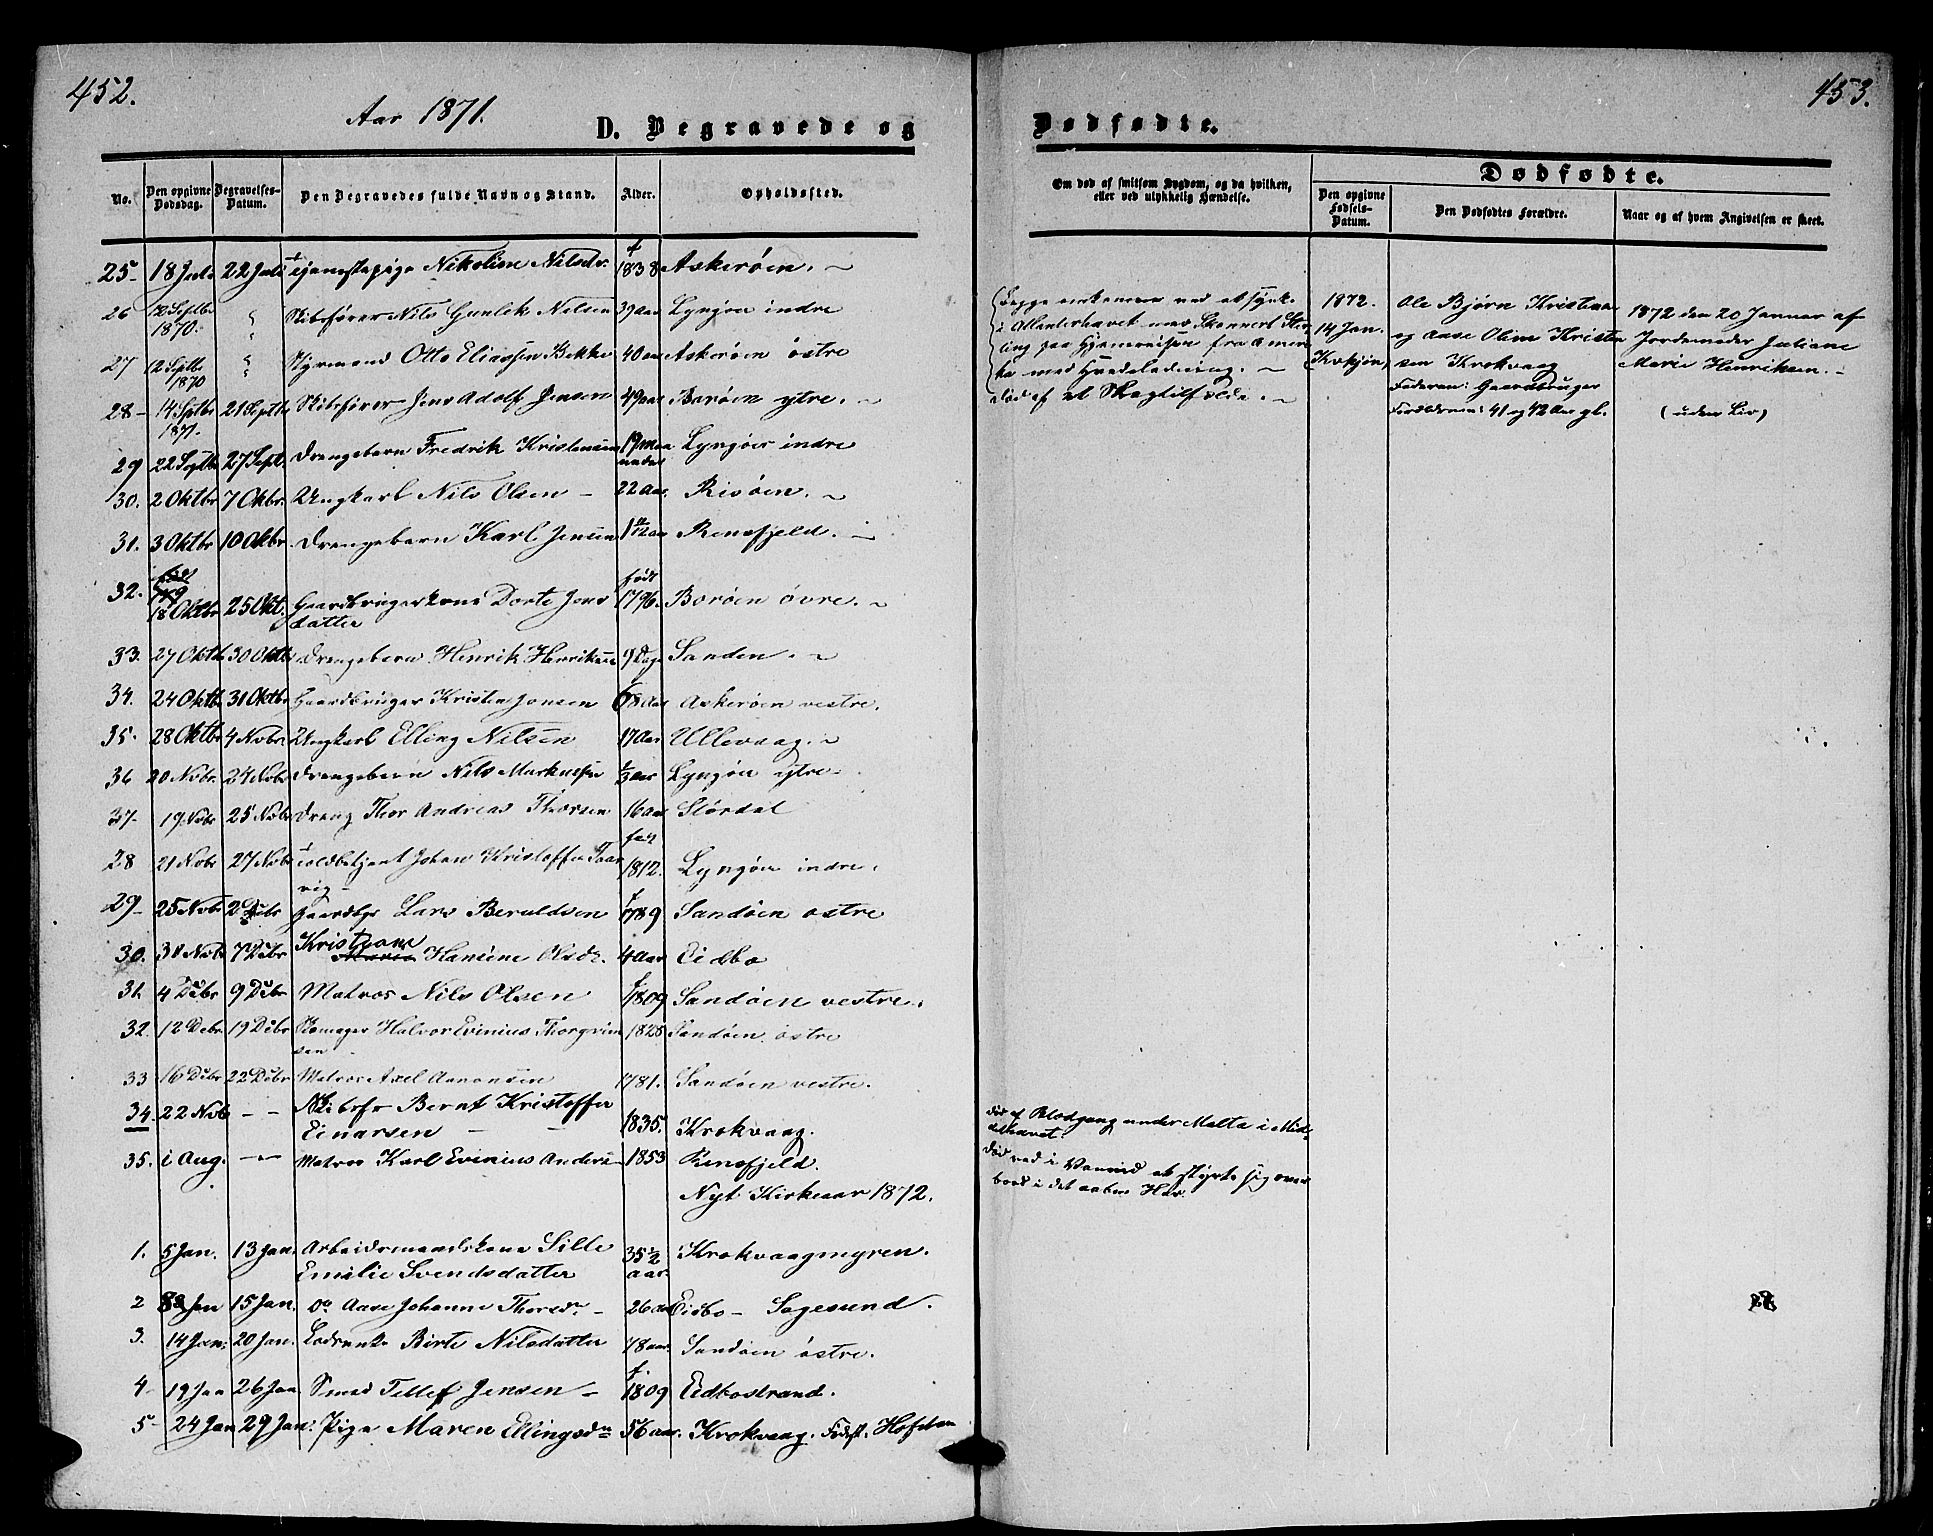 452.
Aar 1871.
D. Begravede og
No.
Den opgivne Dødsdag.
Begravelses-Datum.
Den Begravedes fulde Navn og Stand.
Alder.
Opholdssted.
25 18 Juli 22 Juli Tjenestepige Nikoline Nilsdr. f 1838 Askerøen.
26 12 Septbr 1870. " Skibsfører Nils Gunlek Nilsen 39 Aar Lyngøer indre
27 12 Septbr 1870 " Styrmand Otto Eliassen Bekke 40 aar Askerøen östre
28 14 Sptbr 1871. 21 Septbr Skibsfører Jens Adolf Jensen 49 aar Borøen ytre.
29 22 Septbr 27 Sept. Drengebarn Fredrik Kristensen 19 maaneder Lyngöer indre
30. 2 Oktbr 7 Okbr. Ungkarl Nils Olsen 22 Aar. Risöen.
31. 3 Oktbr 10 Okbr. Drengebarn Karl Jensen 1 Aar Rensfjeld.
32. 18 Oktbr 25 Okt. Gaardbrugerskone Dorte Jensdatter født 1796. Boröen övre.
33. 27 Oktbr 30 Oktbr Drengebarn Henrik Henriksen 9 Dage Sanden.
34. 24 Oktbr 31 Oktbr Gaardbruger Kristen Jensen 68 Aar Askeröen vestre.
35. 28 Oktbr 4 Nobr. Ungkarl Elling Nilsen 17 Aar Ullevaag.
36 20 Nobr. 24 Nobr Drengebarn Nils Markussen 1/3 Aar Lyngöer ytre
37 19 Nobr 25 Nobr Dreng Thor Andreas Thorsen 16 aar Slørdal
28 21 Nobr 27 Nobr Toldbetjent Johan Kristoffer Taarvig 1812. Lyngöer indre.
29 25 Nobr 2 Debr Gaardbgr Lars Beruldsen f 1789 Sandöen ostre
30. 30 Nobr 7 Debr Kristiane Hansine Olsdr. 4 Aar Eidbo
31. 4 Debr 9 Debr Matros Nils Olsen f 1809 Sandöen vestre.
32. 12 Debr 19 Debr Skomager Halvor Evinius Thorgrimsen 1828 Sandöen östre
33 16 Debr 22 Debr Matros Axel Aanonsen 1781. Sandöen vestre.
34. 22 Nob - - Skibsfr Bernt Kristoffer Einarsen 1835. Krokvaag.
35. i Aug. - Matros Karl Evinius Andersen 1853 Rensfjeld.
Nyt Kirkeaar 1872.
1. 5 Jan. 13 Jan. Arbeidsmandskone Sille Emilie Svendsdatter 35 1/2 aar. Krokvaagmyren.
2 8 Jan 15 Jan. Do Aase Johanne Thorsdr 26 aar Eidbo - Sagesund.
3. 14 Jan: 20 Jan. Birte Nilsdatter 78 aar Sandöen östre.
4 19 Jan 26 Jan Smed Tellef Jensen f. 1809 Eidbostrand.
5 24 Jan 29 Jan: Pige Maren Ellingsdr 56 aar. Krokvaag. Fødest.
453.
Dødfødte.
Om død af smitsom Sygdom, og da hvilken, eller ved ulykkelig Hændelse.
Dødfødte.
Den opgivne Fødsels-Datum.
Den Dødfødtes Forældre.
Naar og af hvem Angivelsen er skeet.
Begge omkomne ved at synke
i Atlanterhavet med Skonnert Sterling
paa Hjemreisen fra Amerika
med Hvedeladning.
død af et Slagtilfælde.
1872.
14 Jan.
Ole Bjørn Kristian
og Aase Oline Kristensen
Krokvaag
Faderen: Gaardbruger
Forældrene: 41 og 42 Aar gl.
1872 den 20 Januar af
Jordemoder Juliane
Marie Henriksen.
(uden Liv)
død af Blodgang under Malta i Middelhavet.
død ved i Vanvid at styrte sig overbord i det aabne Hav.